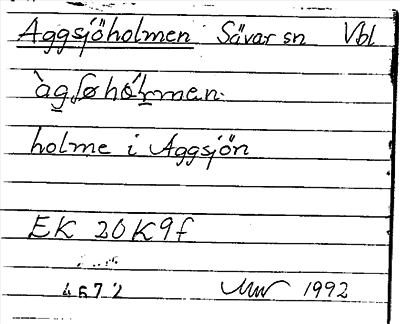 Aggsjöholmen Sävar sn Vbl
àgʃøhólmen
holme i Aggsjön
EK 20K9f
4672 1992